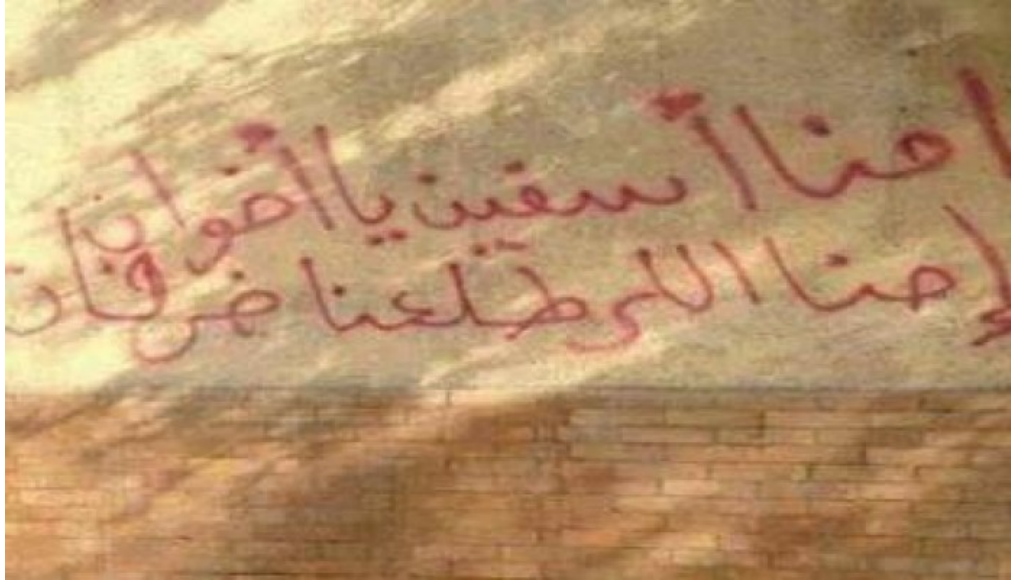 احنا أسفين يا أخوان
إحنا اللى طلعنا خرفان